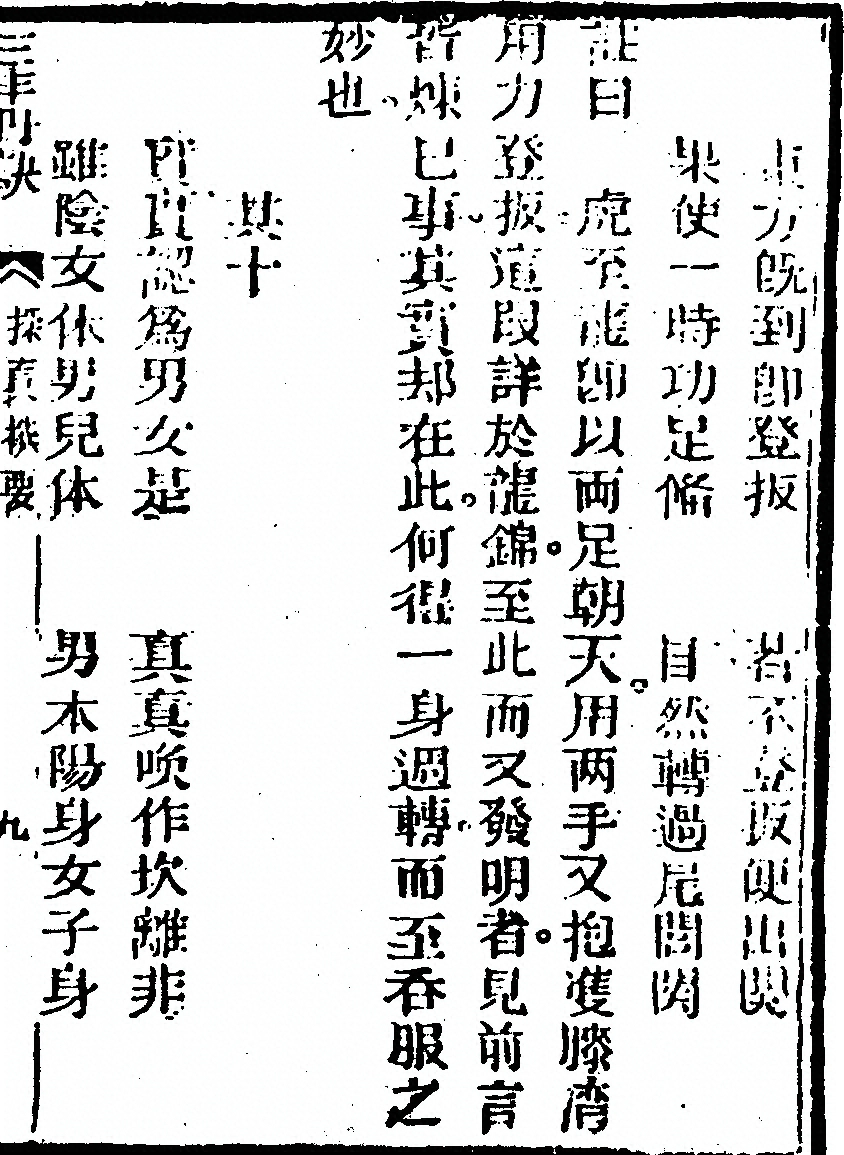 車力既到即登扳 若不登扳便出関
果使一時功足俻 自然轉過尾閭関
註曰 虎至龍卽以両足朝天用两手叉抱䨇膝湾
用力登扳這段詳於龍錦至此而又發明者見前言
皆煉已事其實却在此何得一身週轉而至吞服之
妙也
其十
真認爲男女是 真真喚作坎離非
雖陰女休男兒体 男本陽身女子身
三車丹訣 採真機要 九